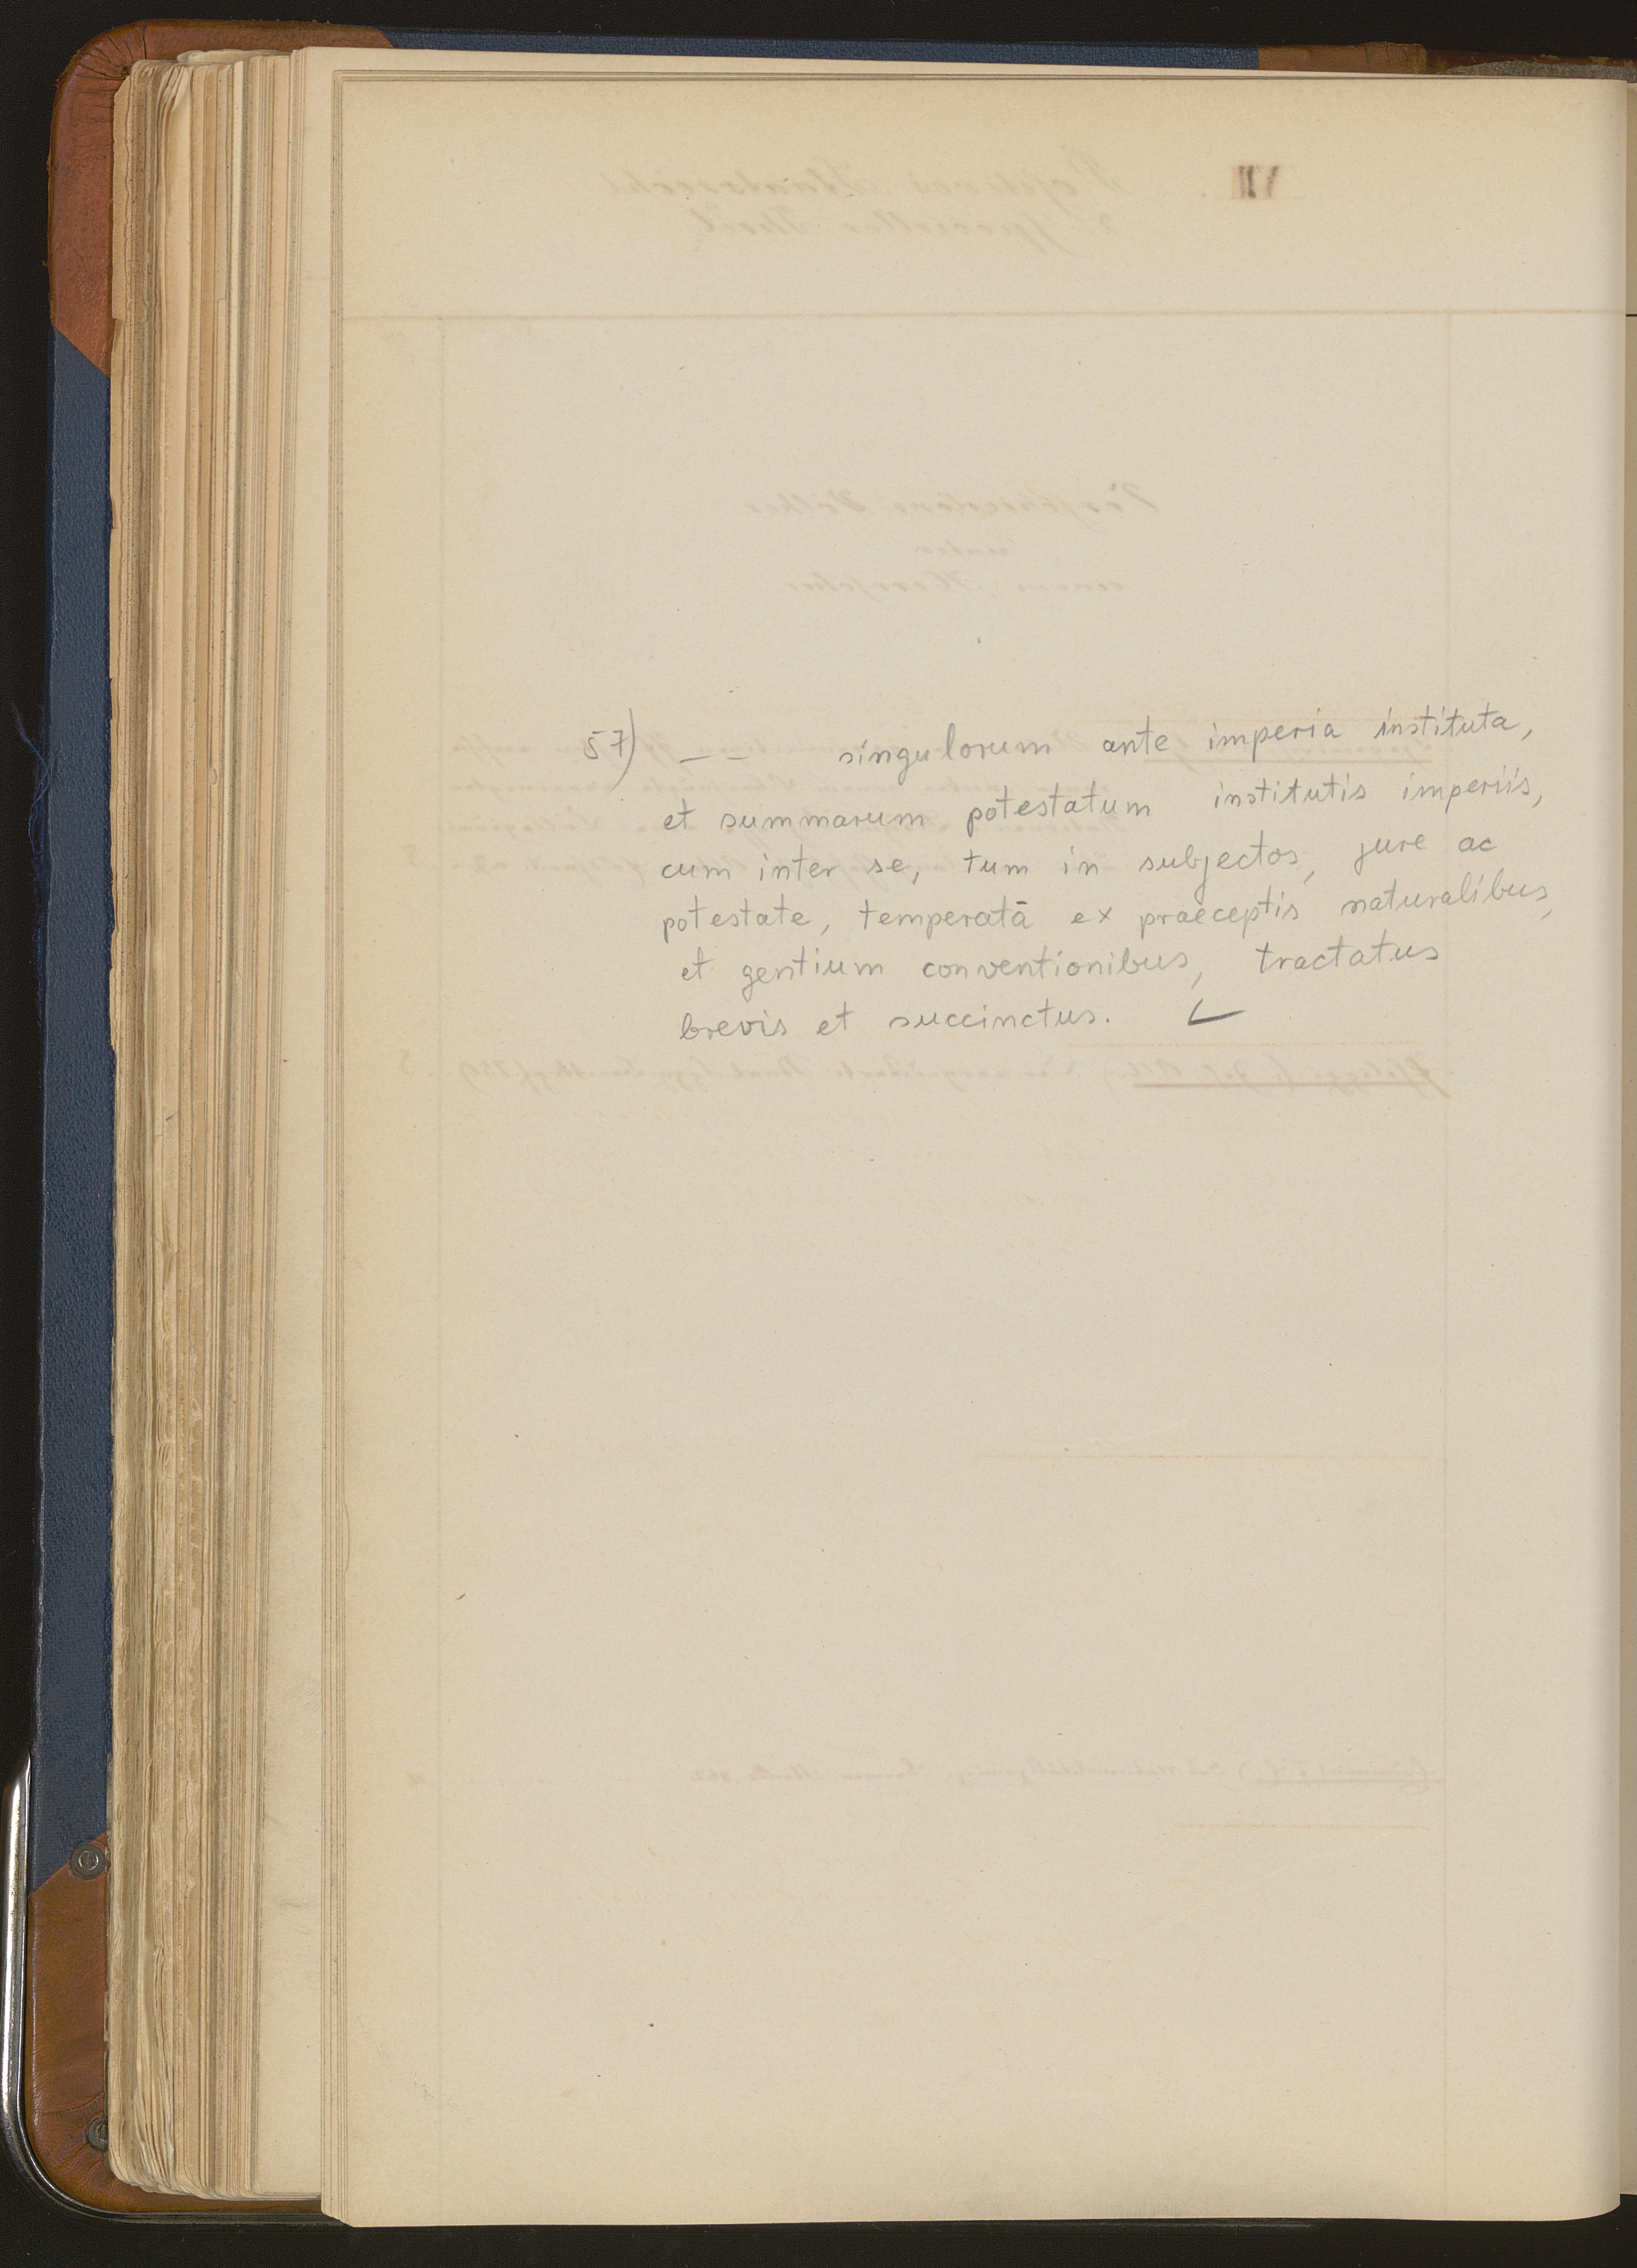 57) — — singulorum ante imperia instituta,
et summarum potestatum institutis imperiis,
cum inter se, tum in subjectos, jure ac
potestate, temperatā ex praeceptis naturalibus,
et gentium conventionibus, tractatus
brevis et succinctus.